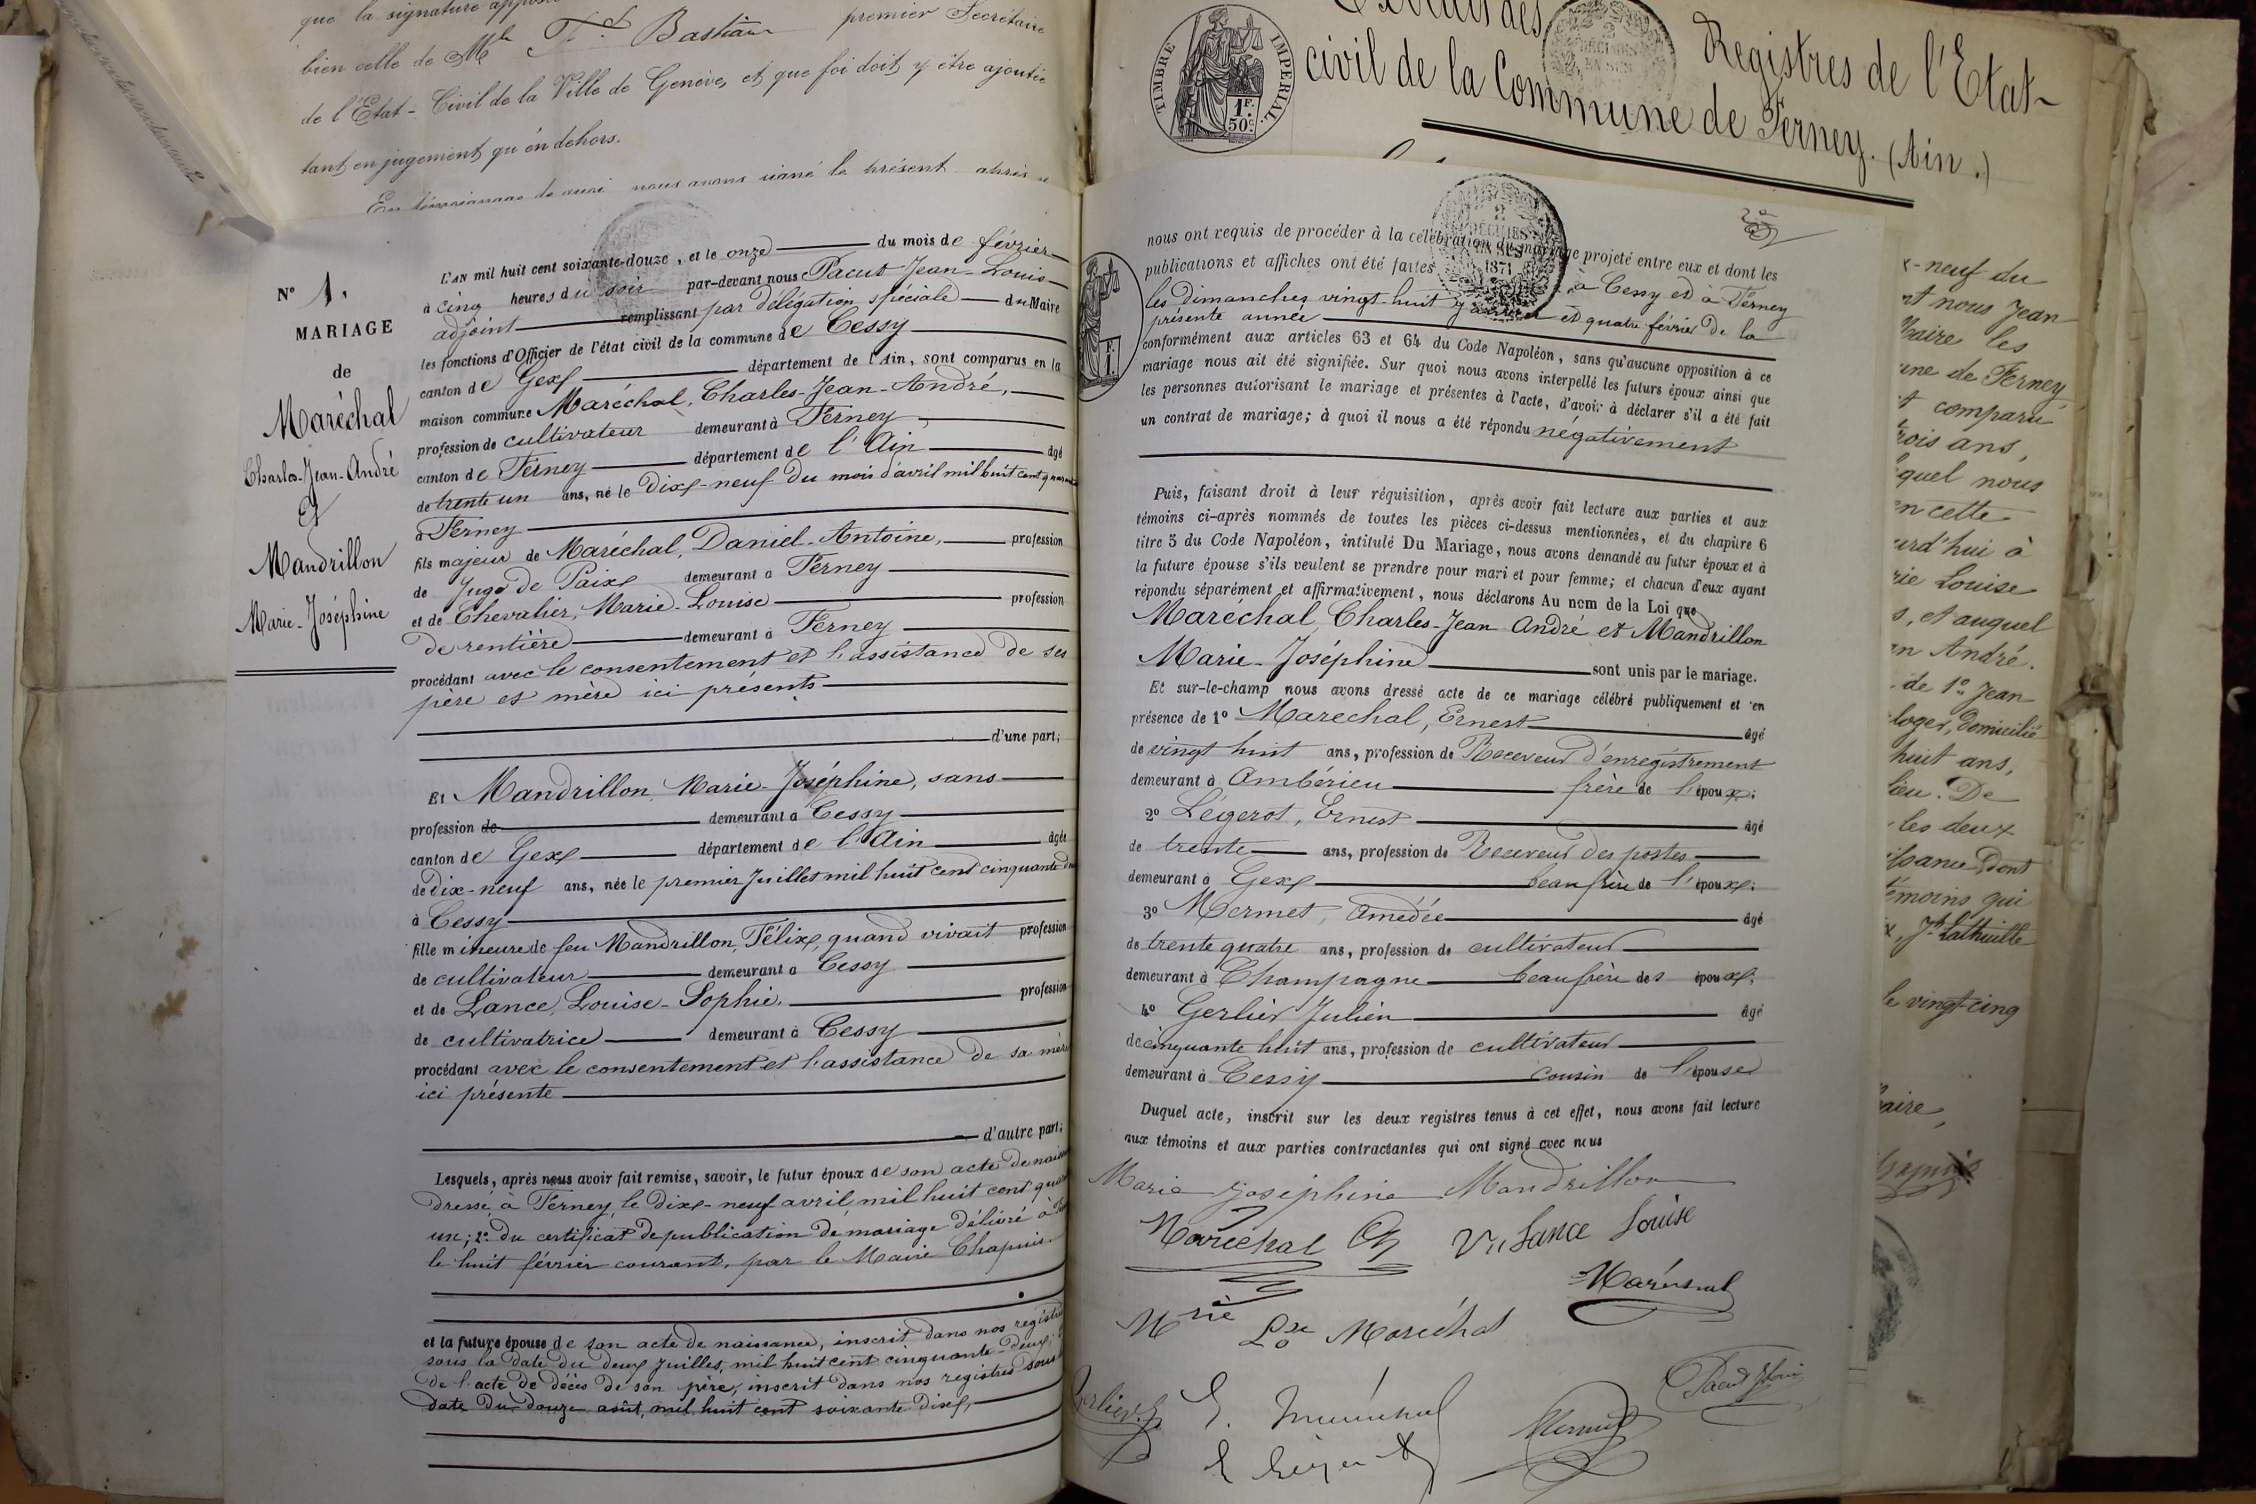 que la signature
bien celle de Mr Fd Bastian premier Secrétaire
de l'Etat-Civil de la Ville de Genève, et que foi doit y être ajoutée
tant en jugement qu'en dehors.
En témoignage de quoi nous avons signé le présent après
N° 1.
MARIAGE
de
Maréchal
Charles-Jean-André
et
Mandrillon
Marie-Joséphine
L'AN mil huit cent soixante-douze, et le onze du mois de février
à cinq heures du soir par-devant nous Pacut Jean-Louis
adjoint remplissant par délégation spéciale du Maire
les fonctions d'Officier de l'état civil de la commune de Cessy
canton de Gex département de l'Ain, sont comparus en la
maison commune Maréchal, Charles-Jean-André,
profession de cultivateur demeurant à Ferney
canton de Ferney département de l'Ain âgé
de trente un ans, né le dix-neuf du mois d'avril mil huit cent
à Ferney
fils majeur de Maréchal, Daniel-Antoine, profession
de Juge de Paix demeurant à Ferney
et de Chevalier, Marie-Louise profession
de rentière demeurant à Ferney
procédant avec le consentement et l'assistance de ses
père et mère ici présents
d'une part;
Et Mandrillon, Marie-Joséphine, sans
profession de demeurant à Cessy
canton de Gex département de l'Ain âgée
de dix-neuf ans, née le premier Juillet mil huit cent cinquante
à Cessy
fille mineure de feu Mandrillon, Félix, quand vivait profession
de cultivateur demeurant à Cessy
et de Lance, Louise-Sophie, profession
de cultivatrice demeurant à Cessy
procédant avec le consentement et l'assistance de sa mère
ici présente
d'autre part;
Lesquels, après nous avoir fait remise, savoir, le futur époux de son acte de
dressé à Ferney, le dix-neuf avril mil huit cent
un; 2° du certificat de publication de mariage délivré à
le huit février courant, par le Maire Chapuis.
et la future épouse de son acte de naissance, inscrit dans nos
sous la date du deux Juillet mil huit cent cinquante-deux;
de l'acte de décès de son père, inscrit dans nos registres sous
date du douze août, mil huit cent soixante dix,
TIMBRE IMPERIAL.
1F. 50c
Extrait des Registres de l'Etat-
civil de la Commune de Ferney. (Ain.)
2 DÉCIMES EN SUS
2 DÉCIMES EN SUS 1871
1 F.
nous ont requis de procéder à la célébration du mariage projeté entre eux et dont les
publications et affiches ont été faites à Cessy et à Ferney
les dimanches vingt-huit janvier et quatre février de la
présente année
conformément aux articles 63 et 64 du Code Napoléon, sans qu'aucune opposition à ce
mariage nous ait été signifiée. Sur quoi nous avons interpellé les futurs époux ainsi que
les personnes autorisant le mariage et présentes à l'acte, d'avoir à déclarer s'il a été fait
un contrat de mariage; à quoi il nous a été répondu négativement
Puis, faisant droit à leur réquisition, après avoir fait lecture aux parties et aux
témoins ci-après nommés de toutes les pièces ci-dessus mentionnées, et du chapitre 6
titre 5 du Code Napoléon, intitulé Du Mariage, nous avons demandé au futur époux et à
la future épouse s'ils veulent se prendre pour mari et pour femme; et chacun d'eux ayant
répondu séparément et affirmativement, nous déclarons Au nom de la Loi que
Maréchal, Charles-Jean André et Mandrillon
Marie-Joséphine sont unis par le mariage.
Et sur-le-champ nous avons dressé acte de ce mariage célébré publiquement et en
présence de 1° Marechal, Ernest âgé
de vingt huit ans, profession de Receveur d'enregistrement
demeurant à Ambérieu frère de l'époux;
2° Légerot, Ernest âgé
de trente ans, profession de Receveur des postes
demeurant à Gex beau frère de l'époux;
3° Mermet, Amédée âgé
de trente quatre ans, profession de cultivateur
demeurant à Champagne beau frère des époux;
4° Gerlier Julien âgé
de cinquante huit ans, profession de cultivateur
demeurant à Cessy cousin de l'épouse
Duquel acte, inscrit sur les deux registres tenus à cet effet, nous avons fait lecture
aux témoins et aux parties contractantes qui ont signé avec nous
Marie Joséphine Mandrillon
Maréchal Ch Vve Lance Louise
Maréchal
Mrie Lse Maréchal
Gerlier J. E. Maréchal Mermet Pacut J Louis
E Légerot
x-neuf du
nt nous Jean
Maire les
une de Ferney
t comparu
rois ans,
quel nous
en cette
urd'hui à
rie Louise
s, et auquel
n André.
de 1° Jean
loger, domicilié
huit ans,
lieu. De
les deux
issance Dont
témoins qui
x, Jh Lathuille
le vingt-cinq
aire,
Chapuis